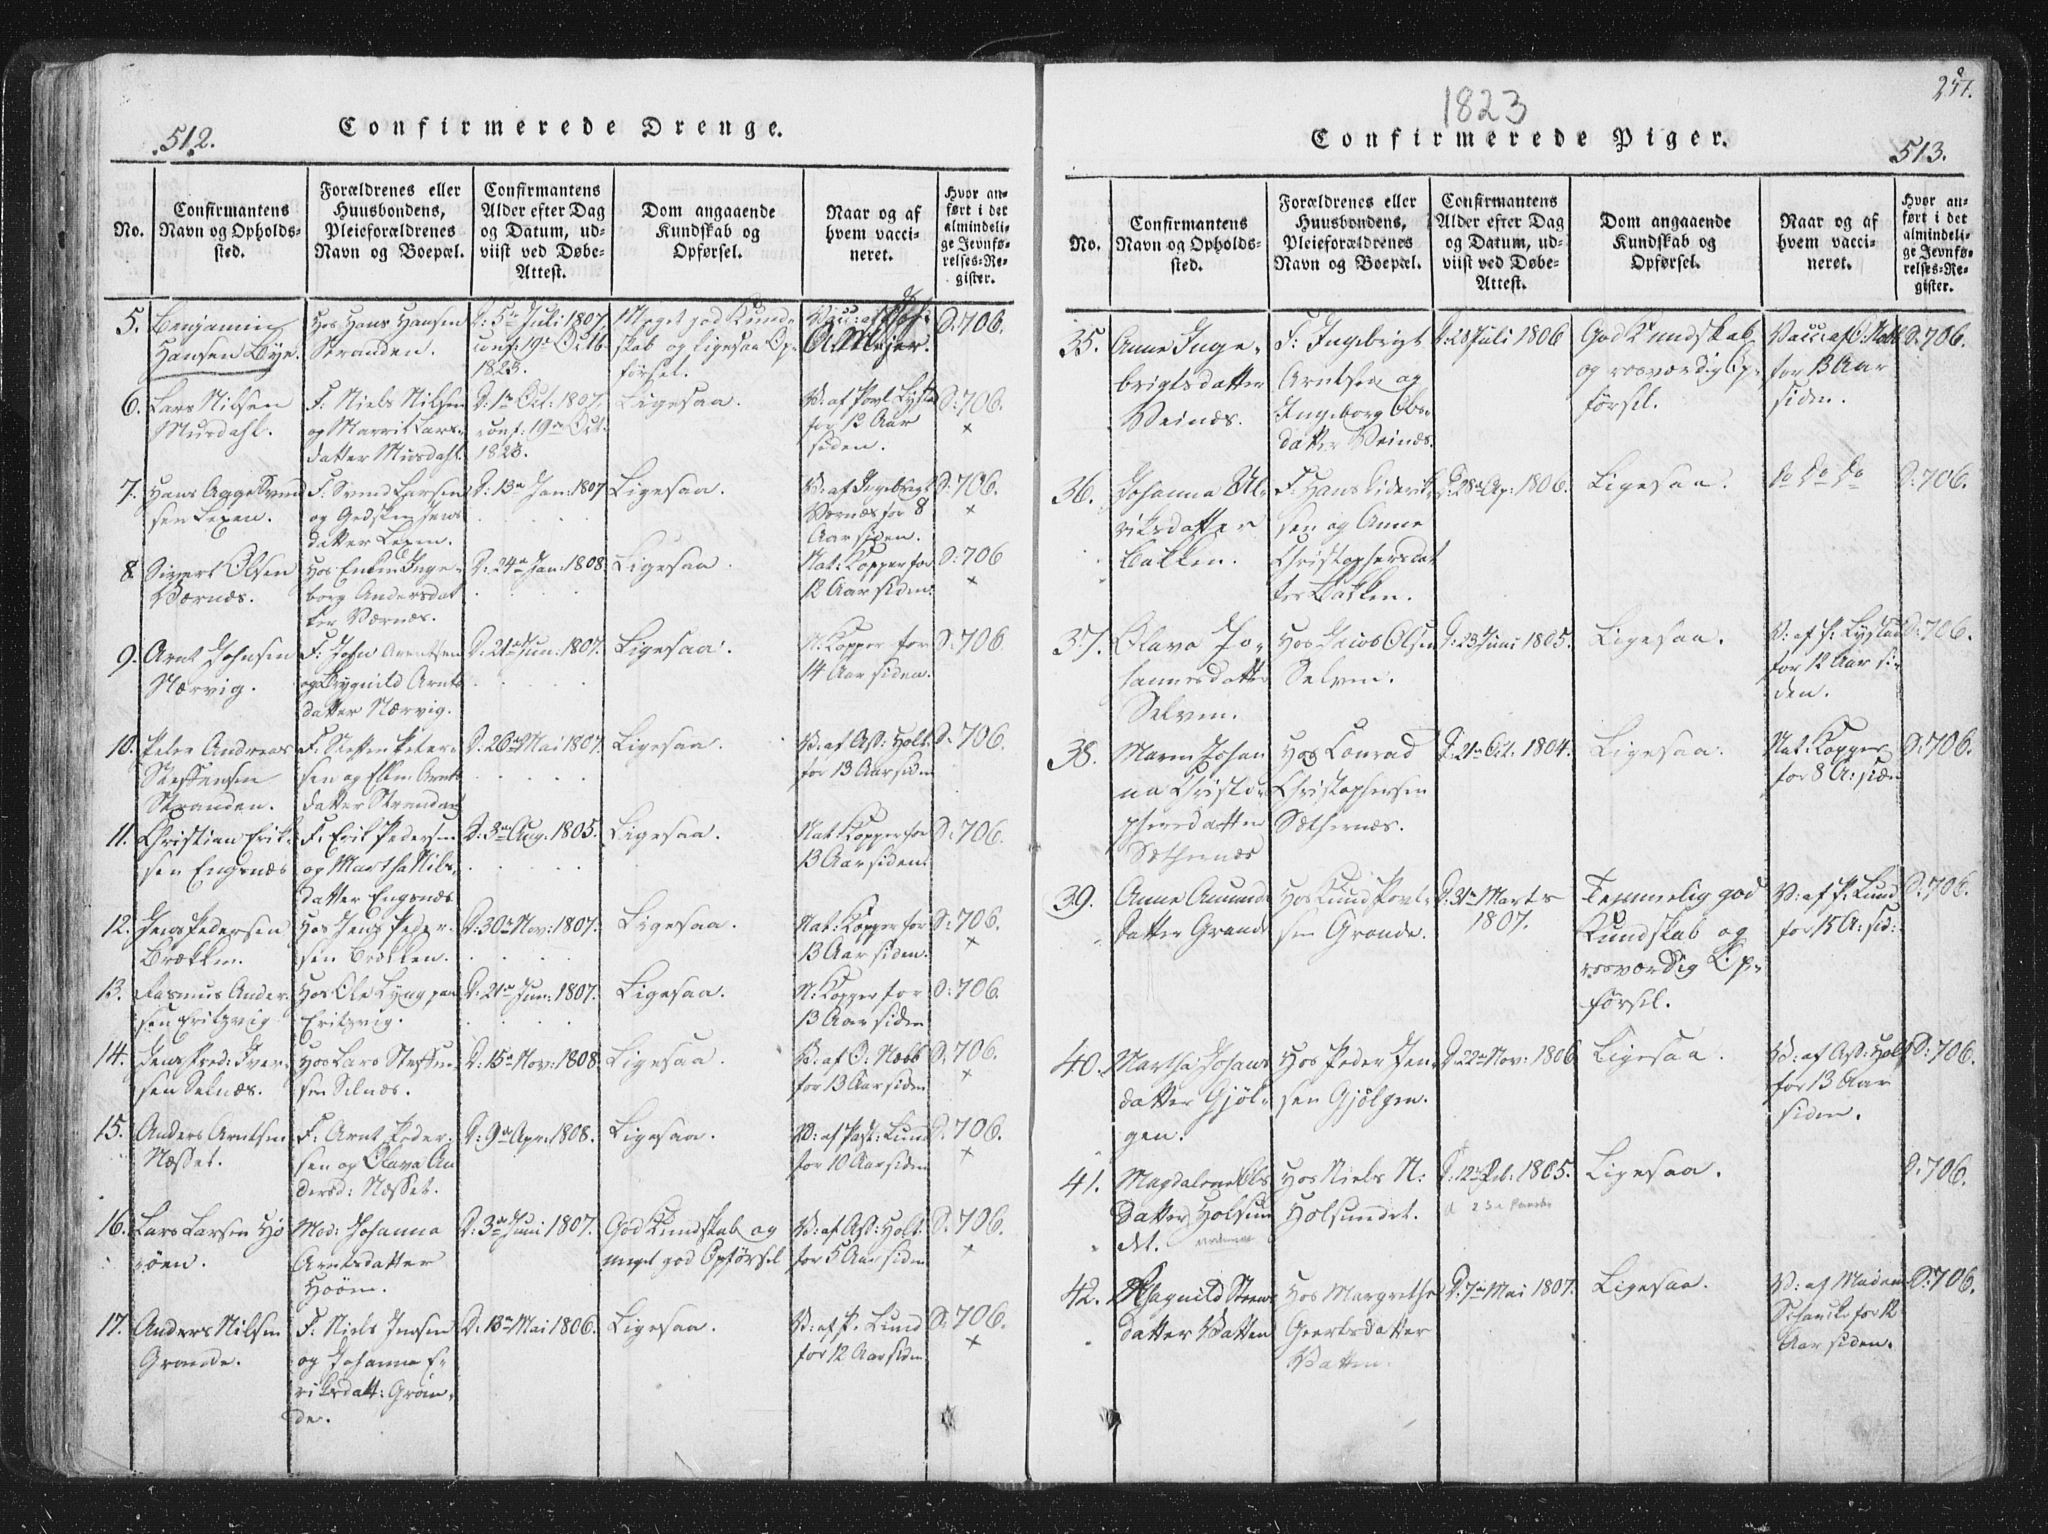 512.
Confirmerede Drenge.
No.
Confirmantens
Navn og Opholds-
sted.
Forældrenes eller
Huusbondens,
Pleieforældrenes
Navn og Boepæl.
Confirmantens
Alder efter Dag
og Datum, ud-
viist ved Døbe-
Attest.
Dom angaaende
Kundskab og
Opførsel.
Naar og af
hvem vacci-
neret.
Hvor an-
ført i det
almindeli-
ge Jevnfø-
relses-Re-
gister.
5.
Benjamin
Hansen Bye.
Hos Hans Hansen
Stranden.
D: 5te Juli 1807
conf: 19de Octb
1823.
Meget god Kund-
skab og ligesaa Op-
førsel.
A. Meyer.
D: 706.
6.
Lars Nilsen
Musdahl.
F: Niels Nilsen
og Marrit Lars-
datter Musdahl.
D: 1te Oct: 1807.
conf: 19de Oct.
1823.
Ligesaa.
V: af Povl
for 12 Aar
siden.
D: 706.
×
7.
Hans Agge Svend
sen Lexen.
F: Svend Larsen
og Jens
datter Lexen.
D: 13de Jan: 1807
Ligesaa.
V: af Ingebrigt
Værnes for 8
Aar siden.
D: 706.
×
8.
Sivert Olsen
Værnæs.
Hos Enken Inge-
borg Andersdat
ter Værnæs.
D: 24de Jan: 1808.
Ligesaa.
Nat: Kopper for
12 Aar siden.
D: 706
×
9.
Arnt Johnsen
Nærvig.
F: John Arentsen
og Arnts
datter Nærvig.
D: 21de Jun: 1807.
Ligesaa.
N: Kopper for
14 Aar siden.
D: 706.
10.
Peter Andreas
Steffensen
Stranden.
F: Steffen Peter-
sen og Ellen Arnts
datter Stranden
D: 26de Mai 1807.
Ligesaa.
V: af Ass: Holt
for 13 Aar siden
D: 706.
11.
Christian Erik-
sen Engsnæs
F: Erik Pedersen
og Martha Nils-
datter Engsnæs
D: 3de Aug: 1805.
Ligesaa.
Nat: Kopper for
13 Aar siden.
D: 706.
12.
Jens Pedersen
Brækken.
Hos Jens Peder-
sen Brækken.
D: 30te Nov: 1807.
Ligesaa.
Nat: Kopper for
13 Aar siden.
D: 706.
×
13.
Rasmus Ander-
sen Fritzvig
Hos Ole Lyng paa
Fritzvig.
D: 21de Jun: 1807.
Ligesaa.
N: Kopper for
13 Aar siden
D: 706.
14.
Jens Fred: Iver-
sen Selnæs.
Hos Lars Steffen-
sen Selnæs.
D: 15de Nov: 1808
Ligesaa.
V: af O: Næbb
for 13 Aar siden
D: 706.
×
15.
Anders Arntsen
Næsset.
F: Arnt Peder-
sen og Olava An
dersd: Næsset.
D: 9de Apr: 1808.
Ligesaa.
V: af Past: Lund
for 10 Aar siden
D: 706.
×
16.
Lars Larsen Hø
iøen.
Mod: Johanna
Arntsdatter
D: 3de Juni 1807.
God Kundskab og
meget god Opførsel
V: af Ass: Holt
for 5 Aar siden
D: 706.
×
17.
Anders Nilsen
Grande.
F: Niels Jensen
og Johanna E-
riksdatt: Gran-
de.
D: 13de Mai 1806.
Ligesaa.
V: af P. Lund
for 12 Aar siden.
D: 706.
×
1823
Confirmerede Piger.
513.
No.
Confirmantens
Navn og Opholds-
sted.
Forældrenes eller
Huusbondens,
Pleieforældrenes
Navn og Boepæl.
Confirmantens
Alder efter Dag
og Datum, ud-
viist ved Døbe-
Attest.
Dom angaaende
Kundskab og
Opførsel.
Naar og af
hvem vacci-
neret.
Hvor an-
ført i det
almindeli-
ge Jevnfø-
relses-Re-
gister.
35.
Anne Inge-
brigtsdatter
Veinæs.
F: Ingebrigt
Arntsen og
Ingeborg Ols-
datter Veinæs.
D: 28 Juli 1806
God Kundskab
og rosværdig Op-
førsel.
for 13 Aar
siden.
D: 706.
36.
Johanna Ul-
riksdatter
Bakken.
F: Hans Diderik-
sen og Anne
Christophersdat
ter Bakken.
D: 28de Ap: 1806.
Ligesaa.
do do do
D: 706.
37.
Olava Jo-
hannesdatter
Selven.
Hos Jacob Olsen
Selven.
D: 23 Juni 1805.
Ligesaa.
V: af P: Lystad
for 12 Aar si-
den.
D: 706.
38.
Maren Johan
na Christo-
phersdatter
Sæthernæs
Hos Conrad
Christophersen
Sæthernæs.
D: 21de Oct. 1804.
Ligesaa.
Nat: Kopper
for 8 A: siden
D: 706.
39.
Anne Amunds
datter Grande
Hos Knud Povl-
sen Grande.
D: 31te Marts
1807.
Temmelig god
Kundskab og
rosværdig Op-
førsel.
V: af P. Lund
for 15 A: sid:
D: 706.
40.
Martha Johans
datter Gjøl-
gen.
Hos Peder Jen-
sen Gjølgen.
D: 22de Nov: 1806
Ligesaa.
V: af Ass: Holt
for 13 Aar
siden.
D: 706.
41.
Magdalene Ols
datter Holsun
det.
Hos Niels N:
Holsundet.
D: 12te Feb: 1805.
Ligesaa.
D: 706.
42.
Ragnild Steens
datter Vatten
Hos Margrethe
Geertsdatter
Vatten.
D: 7de Mai 1807.
Ligesaa.
V: af Madam
Schancke for 12
Aar siden.
D: 706.